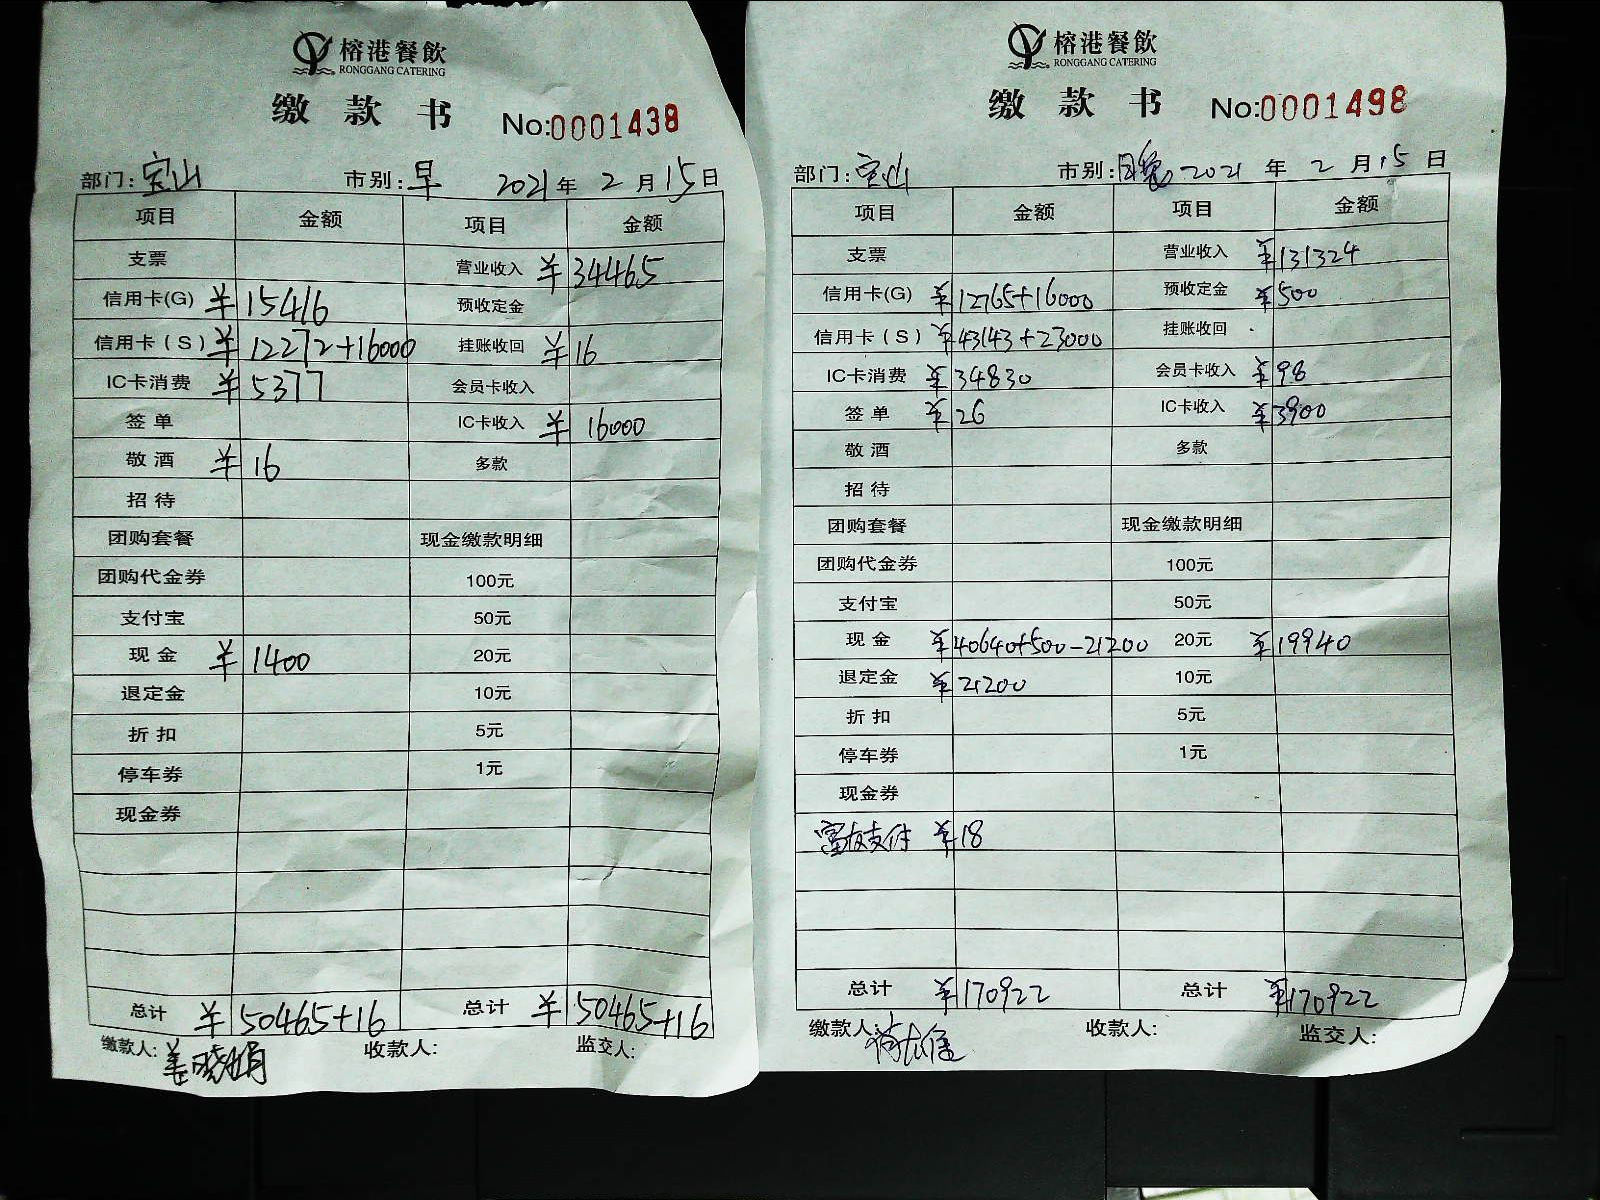 榕港餐飲
RONGGANG CATERING
缴款书 No:0001438
部门:宝山 市别:早 2021年2月15日
项目 金额 项目 金额
支票 营业收入 ¥34465
信用卡(G) ¥15416 预收定金
信用卡(S) ¥12272+16000 挂账收回 ¥16
IC卡消费 ¥5377 会员卡收入
签单 IC卡收入 ¥16000
敬酒 ¥16 多款
招待
团购套餐 现金缴款明细
团购代金券 100元
支付宝 50元
现金 ¥1400 20元
退定金 10元
折扣 5元
停车券 1元
现金券
总计 ¥50465+16 总计 ¥50465+16
缴款人:姜晓娟 收款人: 监交人:
榕港餐飲
RONGGANG CATERING
缴款书 No:0001498
部门:宝山 市别: 2021年2月15日
项目 金额 项目 金额
支票 营业收入 ¥131324
信用卡(G) ¥12765+16000 预收定金 ¥500
信用卡(S) ¥43143+23000 挂账收回
IC卡消费 ¥34830 会员卡收入 ¥98
签单 ¥26 IC卡收入 ¥3900
敬酒 多款
招待
团购套餐 现金缴款明细
团购代金券 100元
支付宝 50元
现金 ¥40640+500-21200 20元 ¥19940
退定金 ¥21200 10元
折扣 5元
停车券 1元
现金券
富友支付 ¥18
总计 ¥170922 总计 ¥170922
缴款人: 收款人: 监交人: